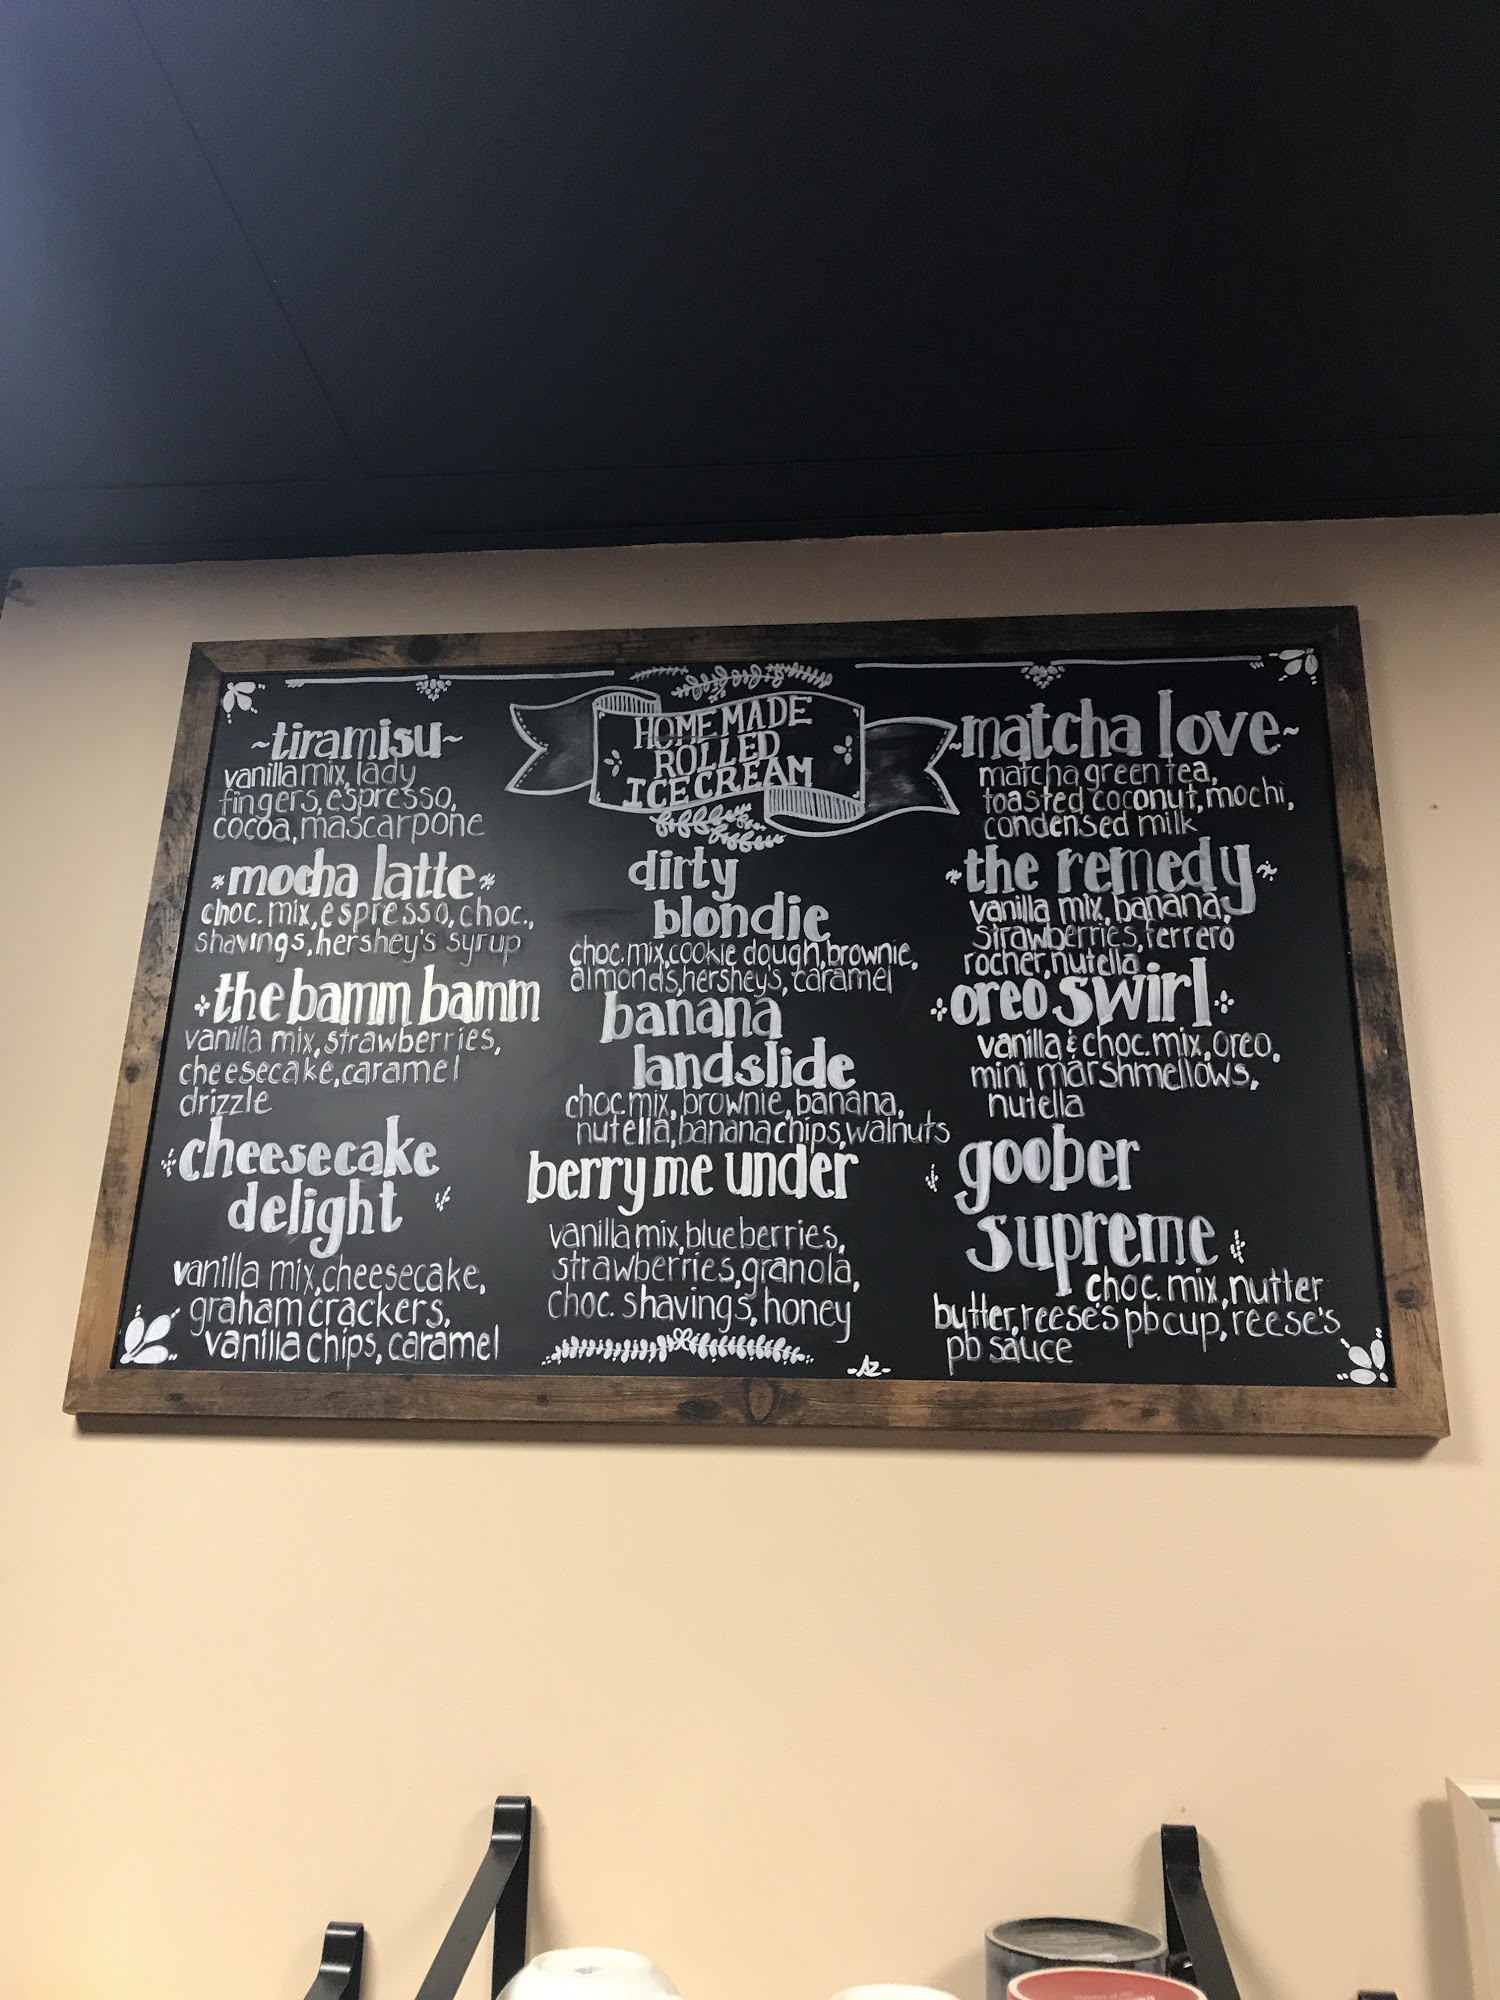 HOMEMADE
ROLLED
ICE CREAM
~tiramisu~
vanilla mix, lady
fingers, espresso,
cocoa, mascarpone
*mocha latte*
choc. mix, espresso, choc.,
shavings, hershey's syrup
the bamm bamm
vanilla mix, strawberries,
cheesecake, caramel
drizzle
cheesecake
delight
vanilla mix, cheesecake,
graham crackers,
vanilla chips, caramel
dirty
blondie
choc. mix, cookie dough, brownie,
almonds, hershey's, caramel
banana
landslide
choc. mix, brownie, banana,
nutella, banana chips, walnuts
berry me under
vanilla mix, blueberries,
strawberries, granola,
choc. shavings, honey
-AZ-
~matcha love~
matcha green tea,
toasted coconut, mochi,
condensed milk
the remedy
vanilla mix, banana,
strawberries, ferrero
rocher, nutella
oreo swirl
vanilla & choc. mix, oreo,
mini marshmellows,
nutella
goober
supreme
choc. mix, nutter
butter, reese's pb cup, reese's
pb sauce